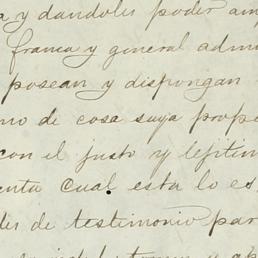 a y dandoles poder am
franca y general admin
posean y dispongan
mo de cosa suya propi
con el justo y lejitim
enta cual esta lo es,
les de testimonio par